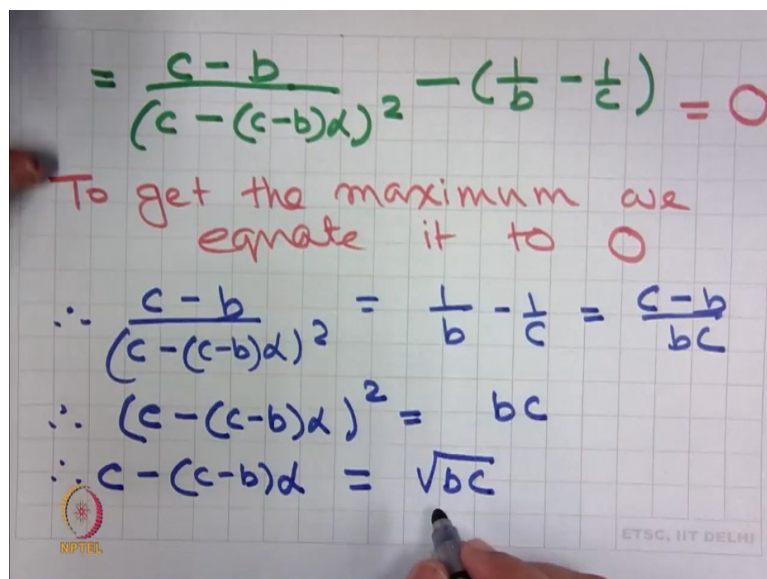 = \frac{c - b}{(c - (c-b)α)^2} - (\frac{1}{b} - \frac{1}{c}) = 0
To get the maximum we
equate it to 0
∴ \frac{c - b}{(c - (c-b)α)^2} = \frac{1}{b} - \frac{1}{c} = \frac{c - b}{bc}
∴ (c - (c-b)α)^2 = bc
∴ c - (c-b)α = \sqrt{bc}
NPTEL
ETSC, IIT DELHI